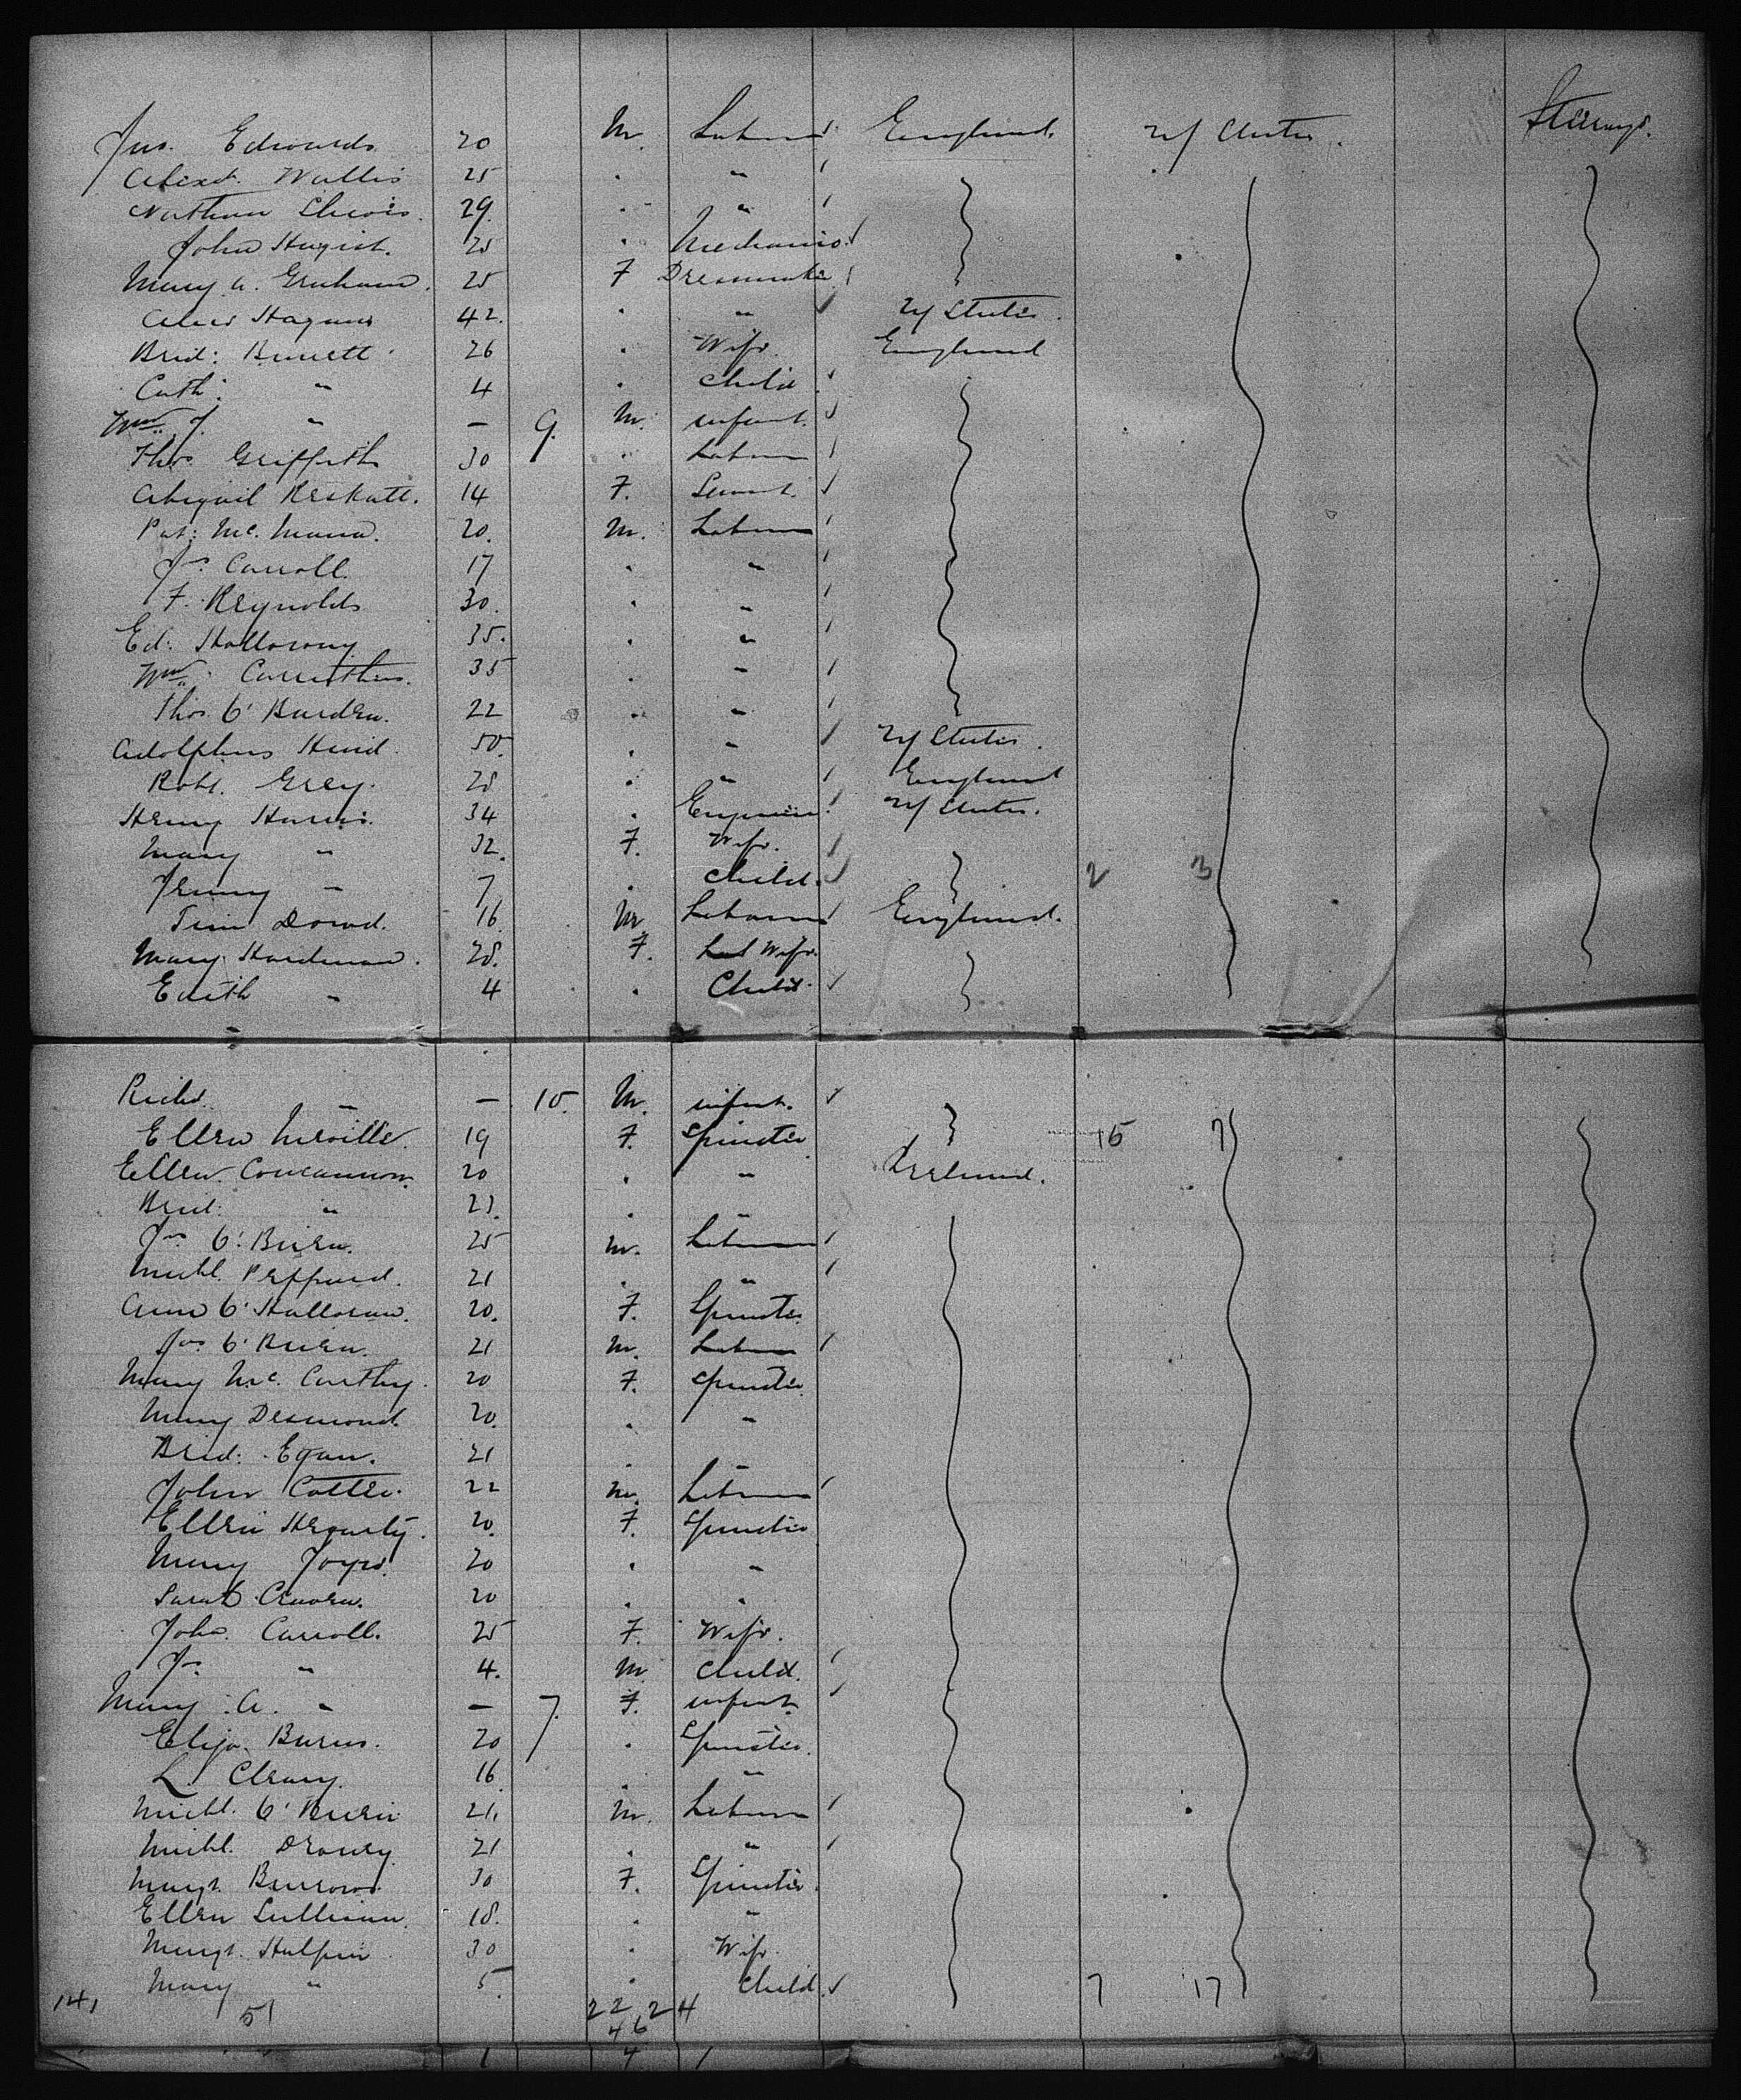 Jas. Edwards 20 M. Laborer England U/States Steerage
Alexd. Wallis 25 . "
Nathan Lewis 29. . "
John Hugist. 25 . Mechanic.
Mary A. Graham. 25 F Dressmaker
Alice Hagues 42. . " U/States.
Brid: Burrett 26 . Wife. England
Cath: " 4 . Child
Wm. J. " — 9. M. infant.
Thos. Griffith 30 . Laborer
Abigail 14 F. Servt.
Pat: McMana. 20. M. Laborer
Js. Carroll. 17 . "
F. Reynolds 30. . "
Ed: Hollorony 35. . "
Wm. Carruthers. 35 . "
Thos. O'Burden. 22 . "
Adolphus Hind. 50. . " U/States.
Robt. Grey. 28 . " England
Henry Harris. 34 . Engineer. U/States.
Mary " 32. F. Wife.
Jenny " 7 . Child. 2 3
Tim Dowd. 16. M. Laborer England.
Mary Hardman. 28. F. Wife.
Edith " 4 . Child.
Richd. " — 10. M. infant.
Ellen Neville. 19 F. Spinster 15 7
Ellen Concannon. 20 . " Ireland.
Brid: " 23. . "
Js. O'Brien. 25 M. Laborer
Michl. Peppard. 21 . "
Anne O'Halloran. 20. F. Spinster
Jas. O'Brien. 21 M. Laborer
Mary McCarthy. 20 F. Spinster
Mary Desmond. 20. . "
Brid: Egan. 21 .
John Cotter. 22 M. Laborer
Ellen Hegarty. 20. F. Spinster
Mary Joyce. 20 . "
Sarah Craven. 20 . "
Joha. Carroll. 25 F. Wife.
Js. " 4. M. Child.
Mary A. " — 7. F. infant.
Eliza. Burns. 20 . Spinster.
L. Cleary. 16. . "
Michl. O'Brien 21. M. Laborer
Michl. Droney. 21 . "
Margt. Burrows. 30 F. Spinster.
Ellen Sullivan. 18. . "
Margt. Halpin 30 . Wife.
Mary " 5. . Child. 7 17
141 51 22 24
46
1 4 1